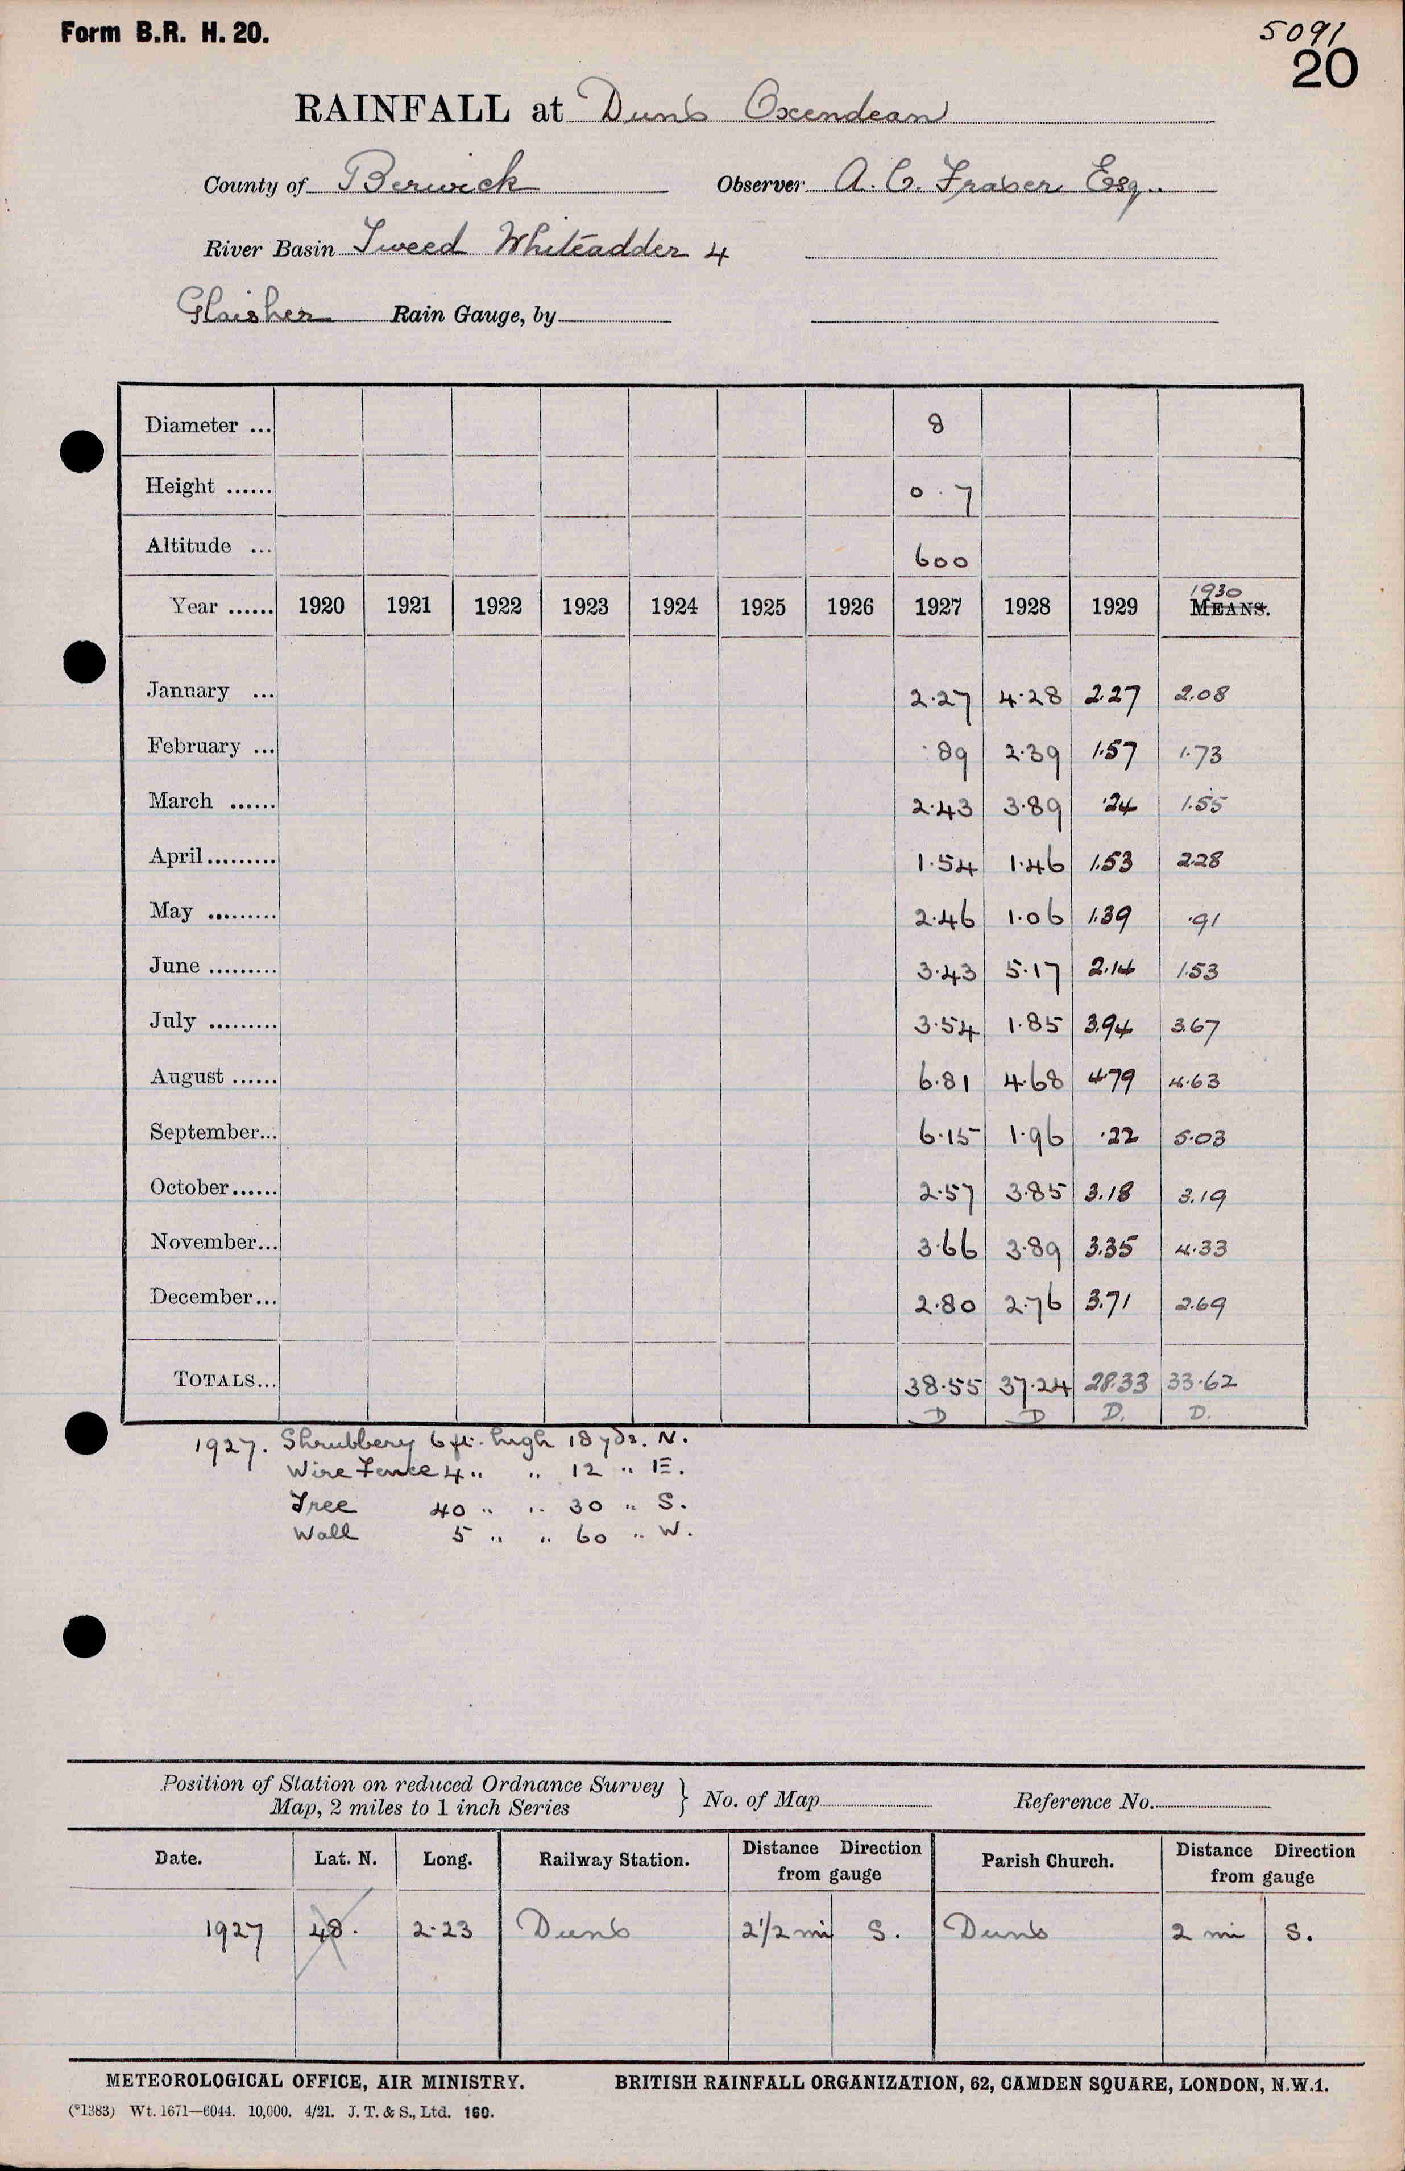 Form B.R. H. 20.
5091
20
RAINFALL at Duns Oxendean
County of Berwick Observer A. C. Fraser Esq.
River Basin Tweed Whiteadder 4
Glaisher Rain Gauge, by
Diameter ... 8
Height ...... 0.7
Altitude ... 600
1930
Year ...... 1920 1921 1922 1923 1924 1925 1926 1927 1928 1929 MEANS.
January ... 2.27 4.28 2.27 2.08
February ... .89 2.39 1.57 1.73
March ...... 2.43 3.89 .24 1.55
April ......... 1.54 1.46 1.53 2.28
May ......... 2.46 1.06 1.39 .91
June ......... 3.43 5.17 2.14 1.53
July ......... 3.54 1.85 3.94 3.67
August ...... 6.81 4.68 4.79 4.63
September... 6.15 1.96 .22 5.03
October...... 2.57 3.85 3.18 3.19
November... 3.66 3.89 3.35 4.33
December... 2.80 2.76 3.71 2.69
TOTALS... 38.55 37.24 28.33 33.62
D D D. D.
1927. Shrubbery 6 ft. high 18 yds. N.
Wire Fence 4 " " 12 " E.
Tree 40 " " 30 " S.
Wall 5 " " 60 " W.
Position of Station on reduced Ordnance Survey
Map, 2 miles to 1 inch Series } No. of Map Reference No.
Date. Lat. N. Long. Railway Station. Distance Direction from gauge Parish Church. Distance Direction from gauge
1927 48. 2.23 Duns 2 1/2 mi S. Duns 2 mi S.
METEOROLOGICAL OFFICE, AIR MINISTRY. BRITISH RAINFALL ORGANIZATION, 62, CAMDEN SQUARE, LONDON, N.W.1.
(*1383) Wt. 1671—6044. 10,000. 4/21. J. T. & S., Ltd. 160.